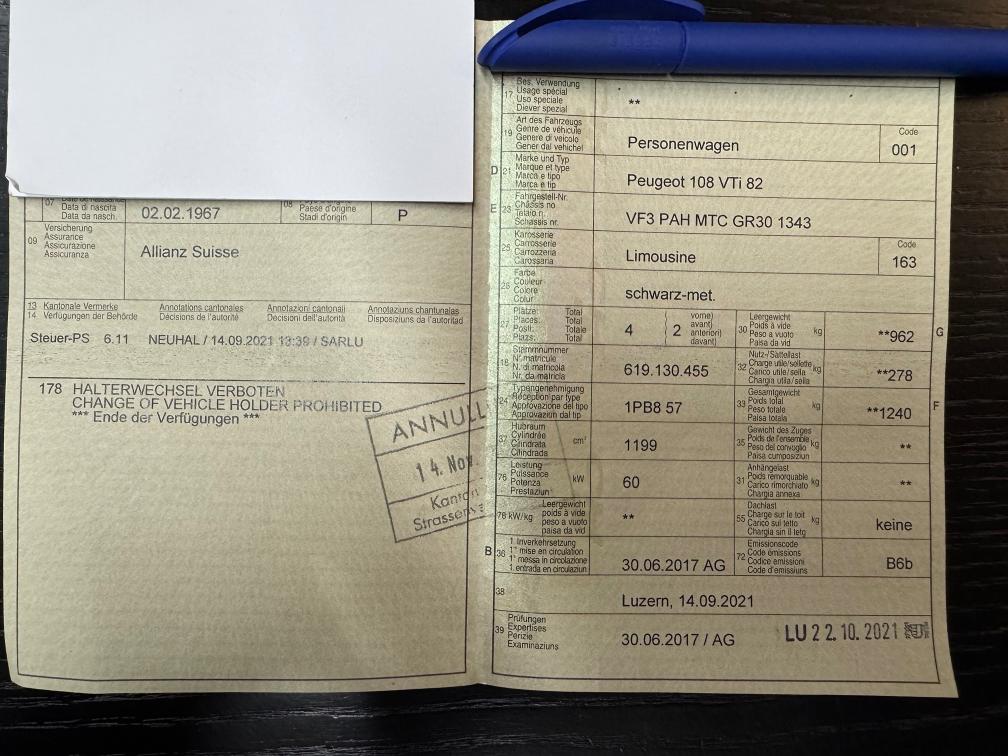 Data di nascita
Data da nasch.
02.02.1967
08
Paese d'origine
Stadi d'origin
P
09
Versicherung
Assurance
Assicurazione
Assicuranza
Allianz Suisse
13 Kantonale Vermerke
14 Verfügungen der Behörde
Annotations cantonales
Décisions de l'autorité
Annotazioni cantonali
Decisioni dell'autorità
Annotaziuns chantunalas
Disposiziuns da l'autoritad
Steuer-PS 6.11 NEUHAL / 14.09.2021 13:39 / SARLU
178 HALTERWECHSEL VERBOTEN
CHANGE OF VEHICLE HOLDER PROHIBITED
*** Ende der Verfügungen ***
ANNULL
14. Nov.
Kanton
Strassenve
17
Bes. Verwendung
Usage spécial
Uso speciale
Diever spezial
**
19
Art des Fahrzeugs
Genre de véhicule
Genere di veicolo
Gener dal vehichel
Personenwagen
Code
001
D 21
Marke und Typ
Marque et type
Marca e tipo
Marca e tip
Peugeot 108 VTi 82
E 23
Fahrgestell-Nr.
Châssis no
Telaio n.
Schassis nr.
VF3 PAH MTC GR30 1343
25
Karosserie
Carrosserie
Carrozzeria
Carossaria
Limousine
Code
163
26
Farbe
Couleur
Colore
Colur
schwarz-met.
27
Plätze: Total
Places: Total
Posti: Totale
Plazs: Total
4
2
vorne)
avant)
anteriori)
davant)
30
Leergewicht
Poids à vide
Peso a vuoto
Paisa da vid
kg
**962
G
18
Stammnummer
N° matricule
N. di matricola
Nr. da matricla
619.130.455
32
Nutz-/Sattellast
Charge utile/sellette
Carico utile/sella
Chargia utila/sella
kg
**278
24
Typengenehmigung
Réception par type
Approvazione del tipo
Approvaziun dal tip
1PB8 57
33
Gesamtgewicht
Poids total
Peso totale
Paisa totala
kg
**1240
F
37
Hubraum
Cylindrée
Cilindrata
Cilindrada
cm³
1199
35
Gewicht des Zuges
Poids de l'ensemble
Peso del convoglio
Paisa cumposiziun
kg
**
76
Leistung
Puissance
Potenza
Prestaziun
kW
60
31
Anhängelast
Poids remorquable
Carico rimorchiato
Chargia annexa
kg
**
78 kW/kg
Leergewicht
poids à vide
peso a vuoto
paisa da vid
**
55
Dachlast
Charge sur le toit
Carico sul tetto
Chargia sin il tetg
kg
keine
B 36
1. Inverkehrsetzung
1re mise en circulation
1a messa in circolazione
1. entrada en circulaziun
30.06.2017 AG
72
Emissionscode
Code émissions
Codice emissioni
Code d'emissiuns
B6b
38
Luzern, 14.09.2021
39
Prüfungen
Expertises
Perizie
Examinaziuns
30.06.2017 / AG
LU 22.10.2021